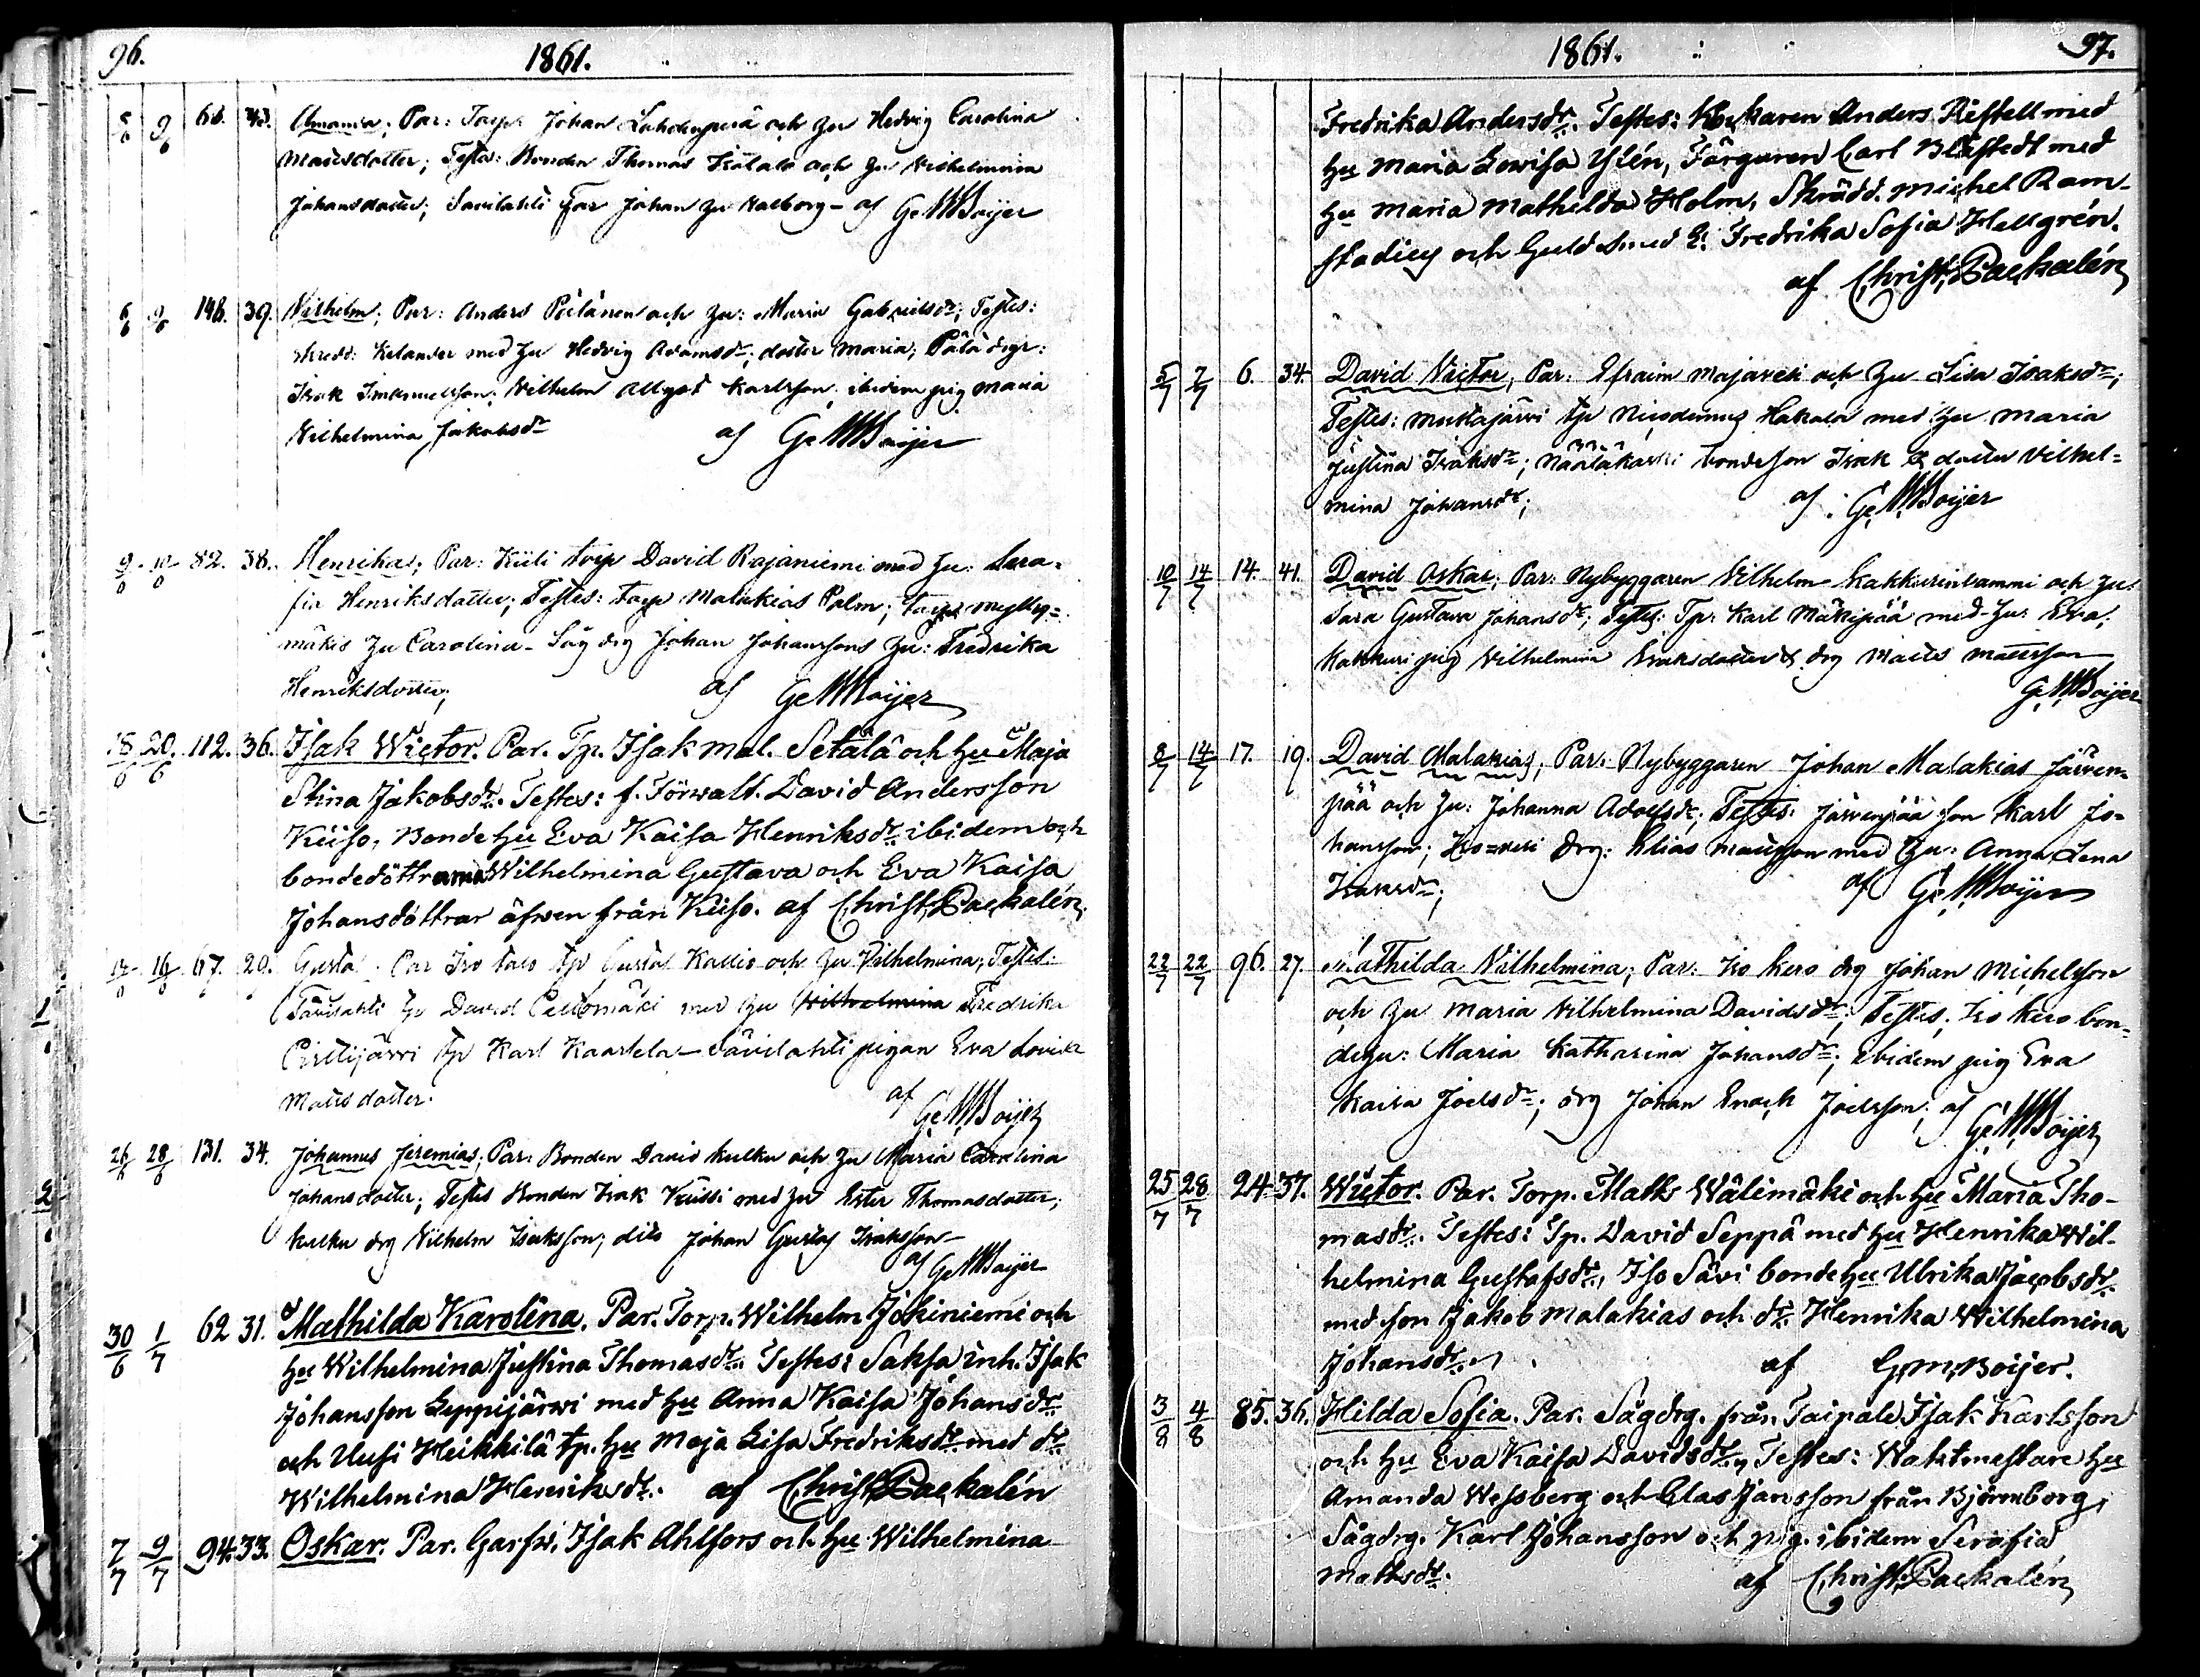 96. 1861.
5/6 9/6 68. 43. Amanda; Par: Torp: Johan Lahdenperä och hu Hedvig Carolina
Mattsdotter; Testes: Bonden Thomas och hu Vilhelmina
Johansdotter; Savilahti Far Johan hu Valborg – af G. M. Boijer
6/6 9/6 148. 39. Vilhelm; Par: Anders Pöilänen och hu: Maria Gabrielsdr; Testes:
skredd: Kelander med hu Hedvig Adamsdr; dotter Maria; Pälä drgr:
Isak Vilhelm Allgot Karlsson, ibidem pig Maria
Vilhelmina Jakobsdr af G. M. Boijer
9/6 10/6 82. 38. Henrika; Par: Küli torp David Rajaniemi med hu: Sera-
fia Henriksdotter; Testes: torp Malakias Palm; torp Mylly-
mäkis hu Carolina – Såg drg Johan Johanssons hu: Fredrika
Henriksdotter; af G. M. Boijer
18/6 20/6 112. 36. Isak Wictor. Par. Tp. Isak Mal. Setälä och hu Maja
Stina Jakobsdr. Testes: f. Förwalt. David Andersson
Keiso, Bonde hu Eva Kaisa Henriksdr. ibidem och
bondedöttrarna Wilhelmina Gustava och Eva Kaisa
Johansdöttrar äfwen från Keiso. af Christ. Packalén.
16/6 67. 20. Gusta. Par Iso talo tp Gustaf Kallio och hu Vilhelmina, Testes:
Tp David Peltomäki med hu Vilhelmina Fredrika
Pirttijärvi tp Karl Kaartela – Savilahti pigan Eva Lovisa
Mattsdotter. af G. M. Boijer
26/6 28/6 131. 34. Johannes Jeremias; Par: Bonden David Kulku och hu Maria Carolina
Johansdotter; Testes Bonden Isak med hu Ester Thomasdotter;
Kulku drg Vilhelm Isaksson; dito Johan Gustaf Isaksson –
af G. M. Boijer
30/6 1/7 62 31. Mathilda Karolina. Par. Torp. Wilhelm Jokiniemi och
hu Wilhelmina Justina Thomasdr. Testes: Saksa, inh. Isak
Johansson Leppijärwi med hu Anna Kaisa Johansdr.
och Uusi Heikkilä tp. hu Maja Lisa Fredriksdr. med dr.
Wilhelmina Henriksdr. af Christ. Packalén
7/7 9/7 94. 33. Oskar. Par. Garfw. Isak Ahlfors och hu Wilhelmina
1861. 97.
Fredrika Andersdr. Testes: Anders Ristell med
hu Maria Lowisa Ylén, Färgaren Carl Blåfstedt med
hu Maria Mathilda Holm, Skrädd. Michel Ram-
stadius och Guldsmed E. Fredrika Sofia Hellgrén.
af Christ. Packalén
5/7 7/7 6. 34. David Victor, Par: Efraim Majavesi och hu Lisa Isaksdr;
Testes: Mustajärvi tp Nicodemus Hakala med hu Maria
Justina Isaksdr; bondeson Isak & dotter Vilhel-
mina Johansdr; af G. M. Boijer
10/7 14/7 14. 41. David Oskar; Par: Nybyggaren Vilhelm Kakkurinlammi och hu:
Sara Gustava Johansdr; Testes: Tp: Karl Mäkipää med hu: Eva;
Kakkuri pig Vilhelmina Isaksdotter & drg Matts Mattsson
G. M. Boijer
8/7 14/7 17. 19. David Malakias; Par: Nybyggaren Johan Malakias Järven-
pää och hu: Johanna Adolfsdr; Testes: Järvenpää son Karl Jo-
hansson; Iso-vesi drg: Elias Mattsson med hu: Anna Lena
Isaksdr; af G. M. Boijer
22/7 22/7 96. 27. Mathilda Vilhelmina; Par: Iso kero drg Johan Michelsson
och hu Maria Vilhelmina Davidsdr; Testes: Iso kero bon-
dehu: Maria Katharina Johansdr; ibidem pig Eva
Kaisa Joelsdr; drg Johan Enoch Joelsson; af G. M. Boijer
25/7 28/7 24. 37. Wictor. Par. Torp. Matts Wälimäki och hu Maria Tho-
masdr. Testes: Tp. David Seppä med hu Henrika Wil-
helmina Gustafsdr, Iso Säwi bonde hu Ulrika Jacobsdr.
med son Jakob Malakias och dr. Henrika Wilhelmina
Johansdr. af G. M. Boijer.
3/8 4/8 85. 36. Hilda Sofia. Par. Sågdrg. från Taipale Isak Karlsson
och hu Eva Kaisa Davidsdr. Testes: Waktmestare hu
Amanda Wessberg och Clas Jansson från Björneborg,
Sågdrg. Karl Johansson och pig. ibidem Serafia
Mattsdr. af Christ. Packalén